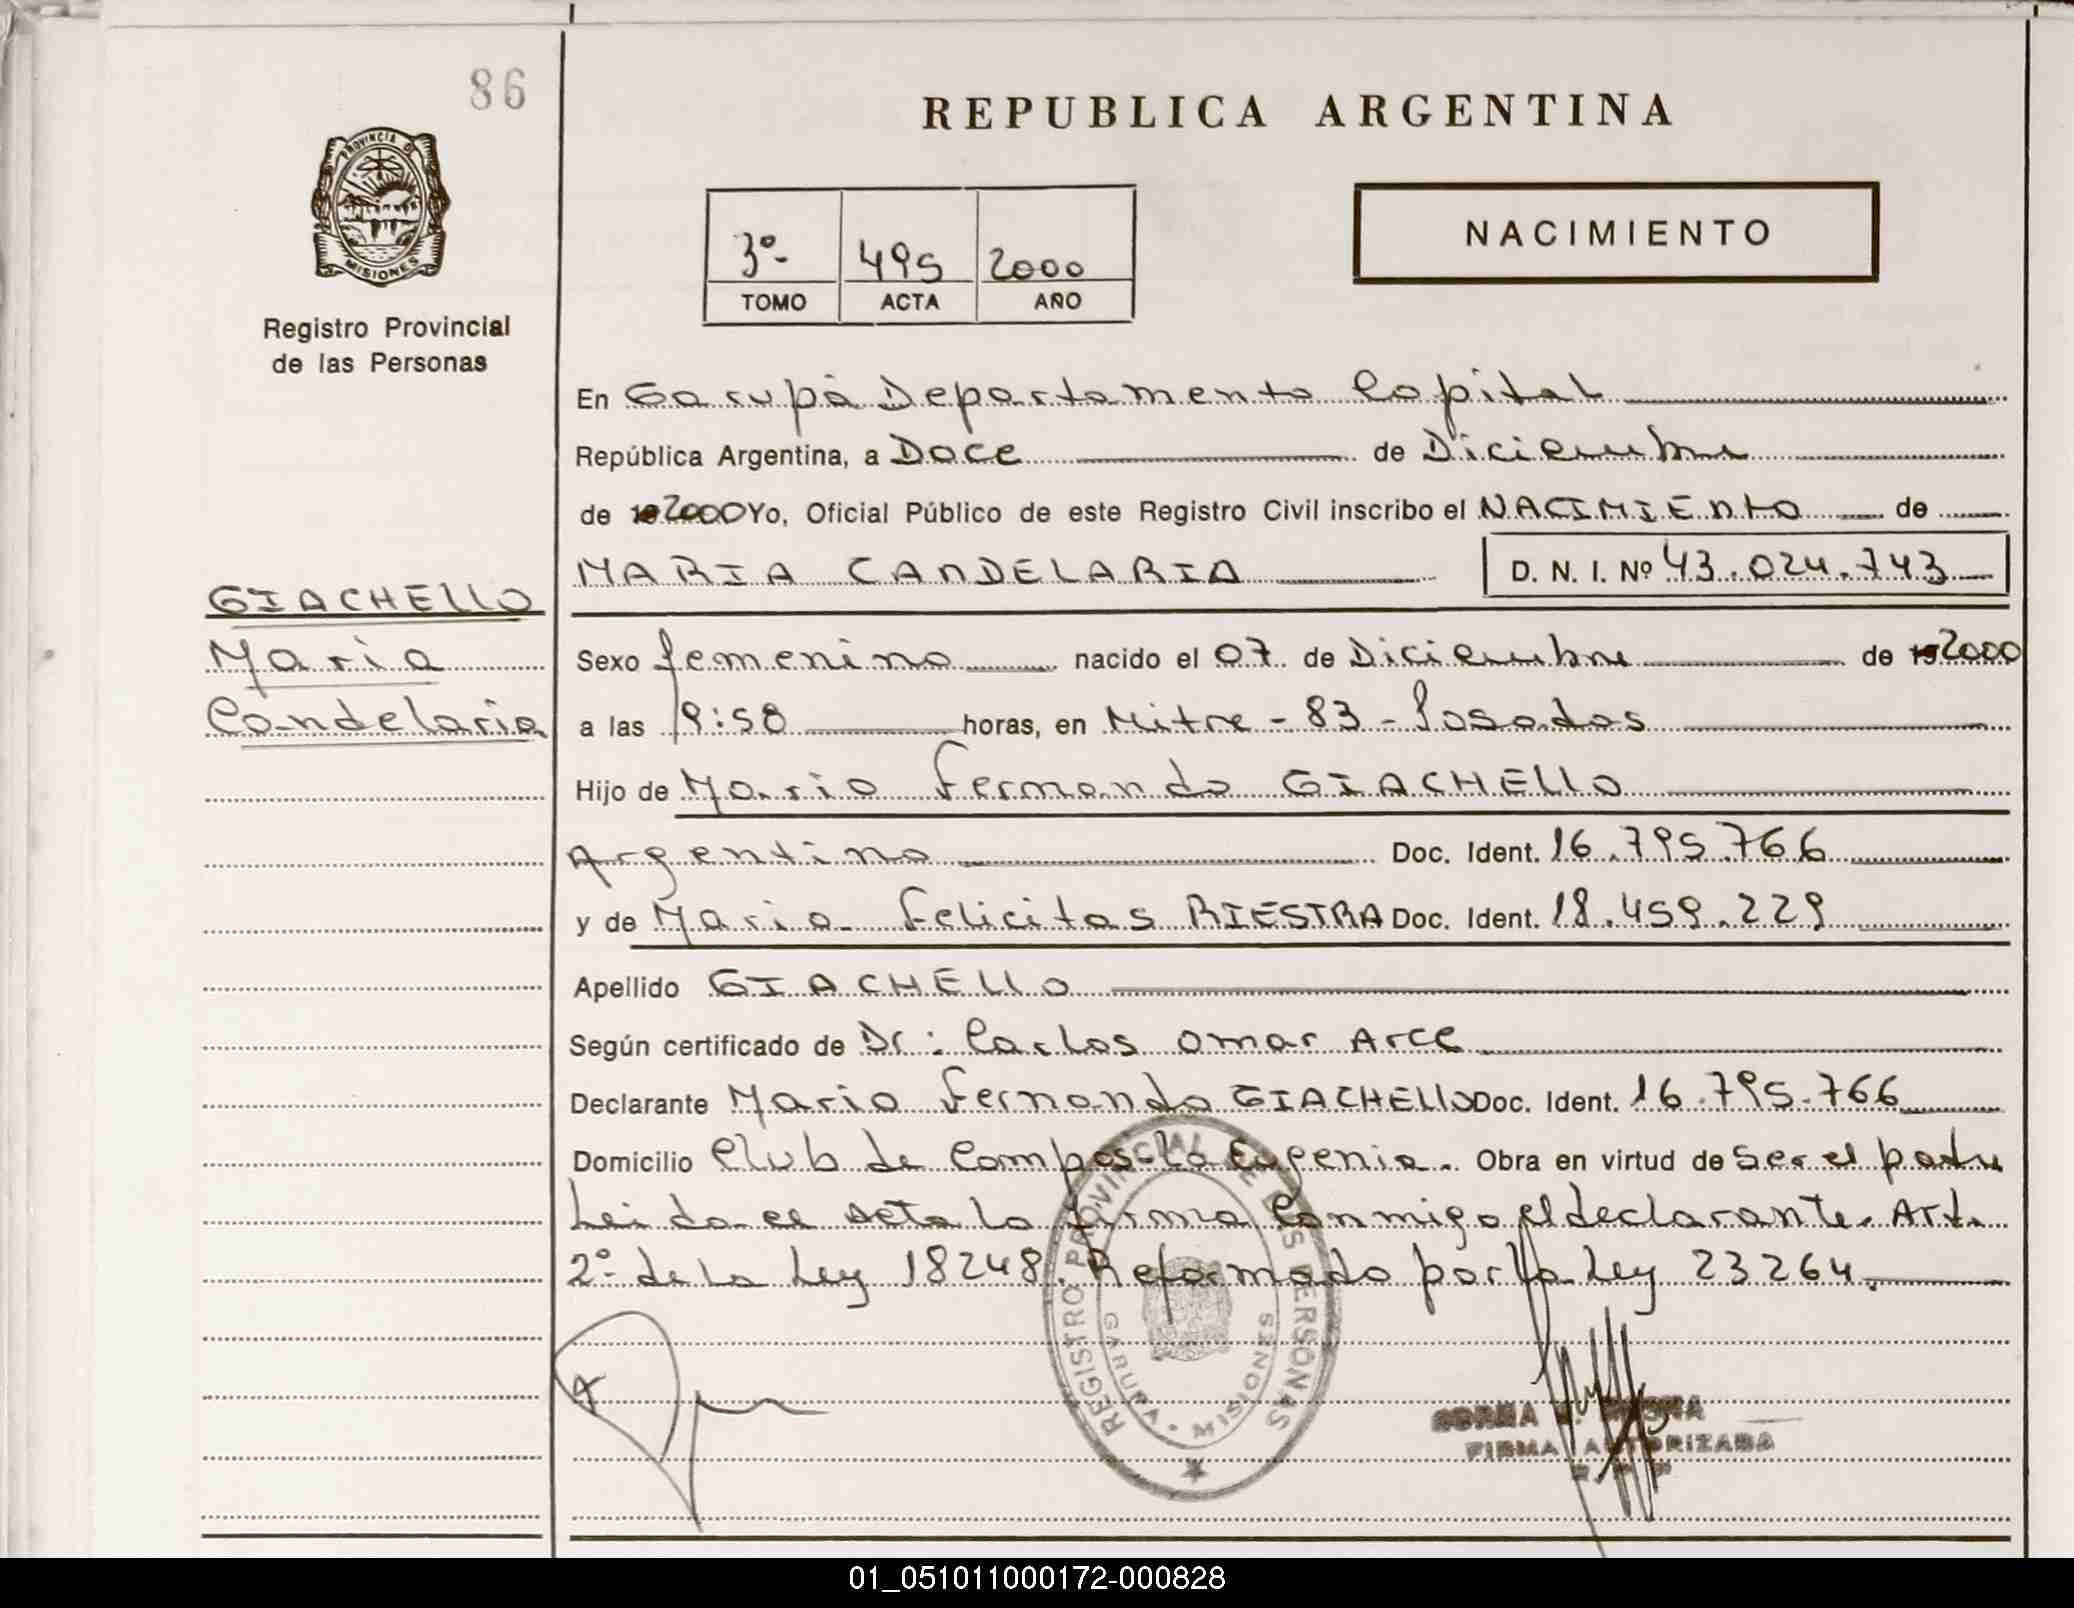 86
REPUBLICA ARGENTINA
PROVINCIA DE
MISIONES
Registro Provincial
de las Personas
3º- 495 2000
TOMO ACTA AÑO
NACIMIENTO
En Garupá Departamento Capital
República Argentina, a Doce de Diciembre
de 192000 Yo, Oficial Público de este Registro Civil inscribo el NACIMIENTO de
MARIA CANDELARIA D. N. I. Nº 43.024.743
GIACHELLO
Maria
Candelaria
Sexo femenino nacido el 07 de Diciembre de 192000
a las 19:50 horas, en Mitre - 83 - Posadas
Hijo de Mario Fernando GIACHELLO
Argentino Doc. Ident. 16.795.766
y de Maria Felicitas RIESTRA Doc. Ident. 18.459.229
Apellido GIACHELLO
Según certificado de Dr: Carlos Omar Arce
Declarante Mario Fernando GIACHELLO Doc. Ident. 16.795.766
Domicilio Club de Campos-La Eugenia. Obra en virtud de ser el padre
Leida el acta la firma Conmigo el declarante. Art.
2º de la Ley 18248. Reformado por la Ley 23264.
REGISTRO PROVINCIAL DE LAS PERSONAS
GARUPA - MISIONES
NORMA
FIRMA AUTORIZADA
01_051011000172-000828